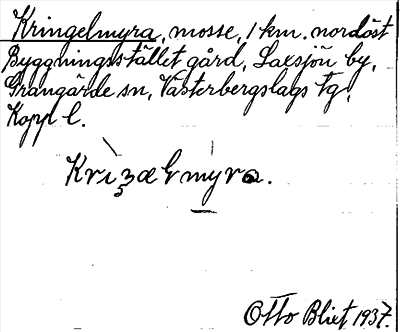 Kringelmyra, mosse, 1 km. nordöst
Byggningsstället gård, Laxsjön by,
Grangärde sn, Västerbergslags tg,
Kopp l.
Otto Blixt 1937.